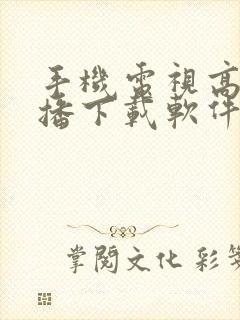 手機電視高
播下載軟件
掌閱文化 彩